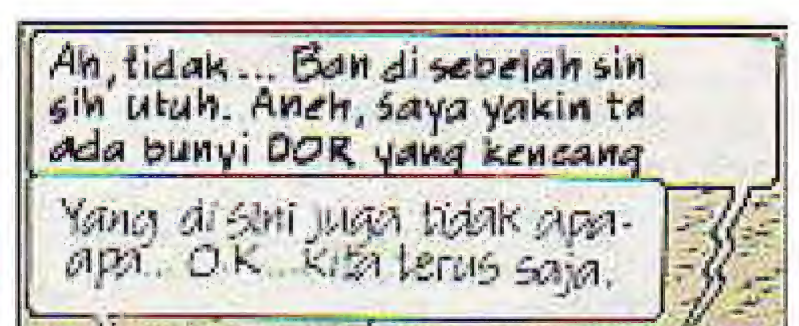 Ah, tidak... Ban di sebelah sin
sih utuh. Aneh, saya yakin ta
ada bunyi DOR yang kencang
Yang di sini juga tidak apa-
apa... O.K...kita terus saja.